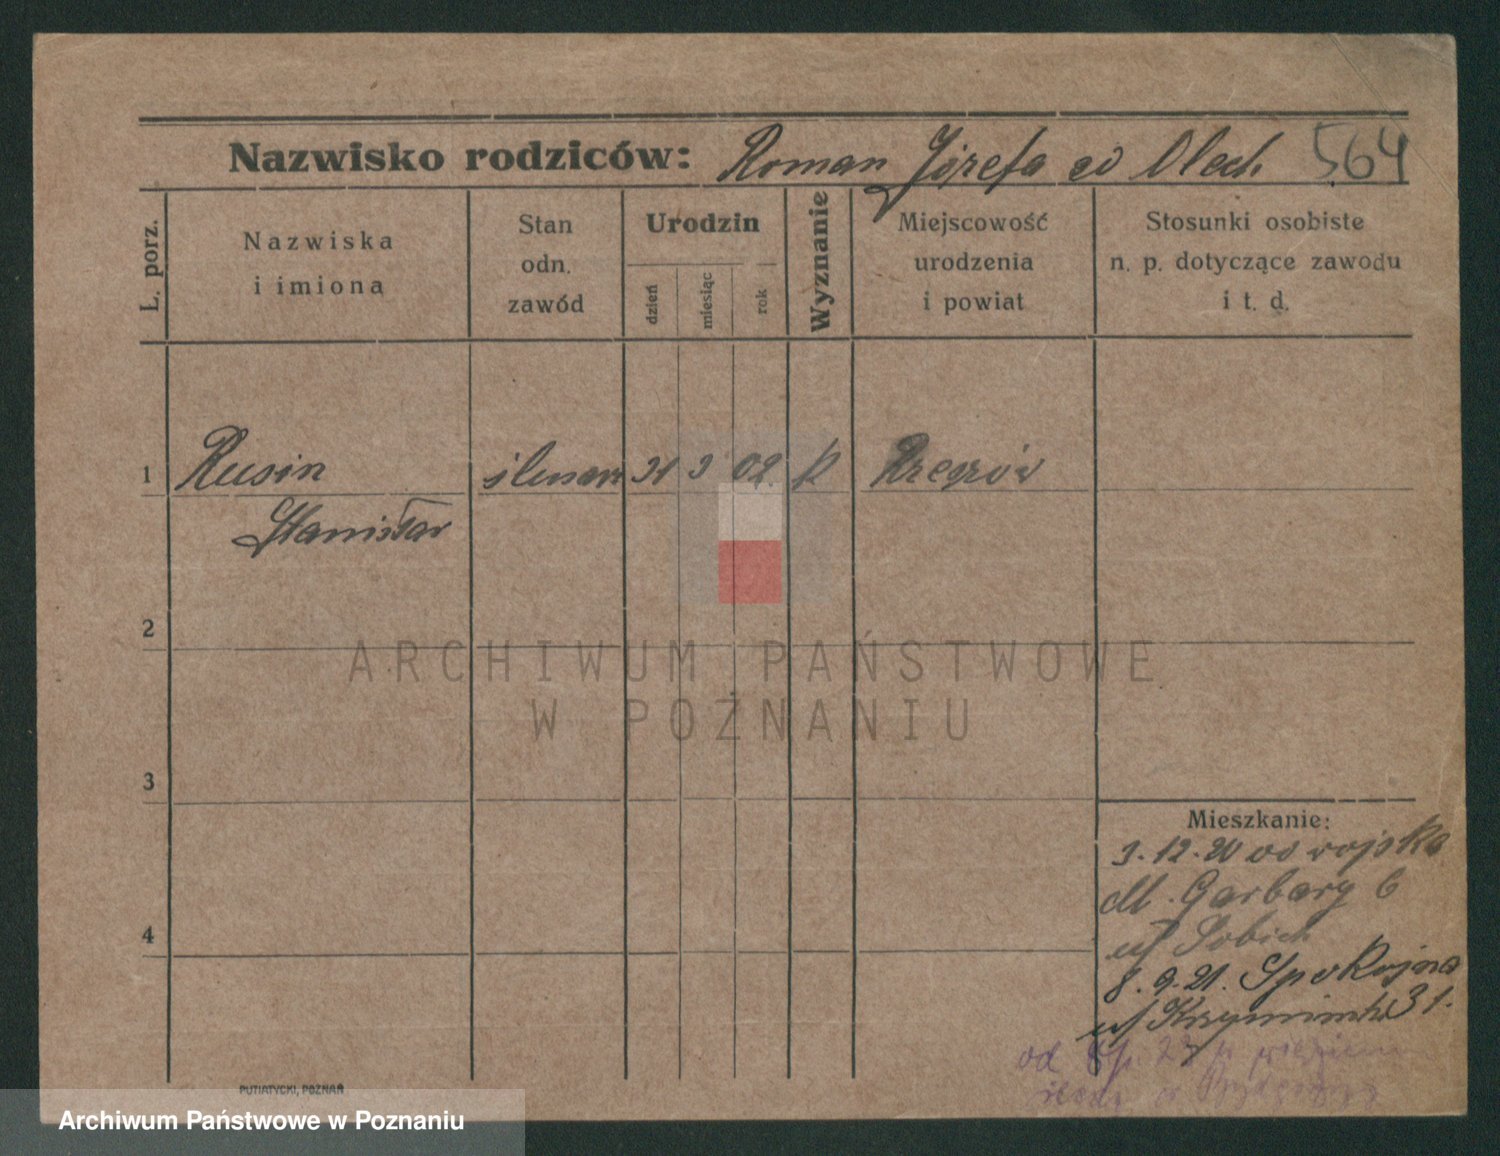 Nazwisko rodziców: Roman Józefa zd Olech 564
L. porz.
Nazwiska
i imiona
Stan
odn.
zawód
Urodzin
dzień
miesiąc
rok
Wyznanie
Miejscowość
urodzenia
i powiat
Stosunki osobiste
n. p. dotyczące zawodu
i t. d.
1 Rusin ślusarz 31 3 02. k
Stanisław
2
3
4
Mieszkanie:
3.12.20 do wojska
M. Garbary 6
u/ Sobich
8.9.21. Spokojna
u/ 31.
od
w
PUTIATYCKI, POZNAŃ
ARCHIWUM PAŃSTWOWE
W POZNANIU
Archiwum Państwowe w Poznaniu